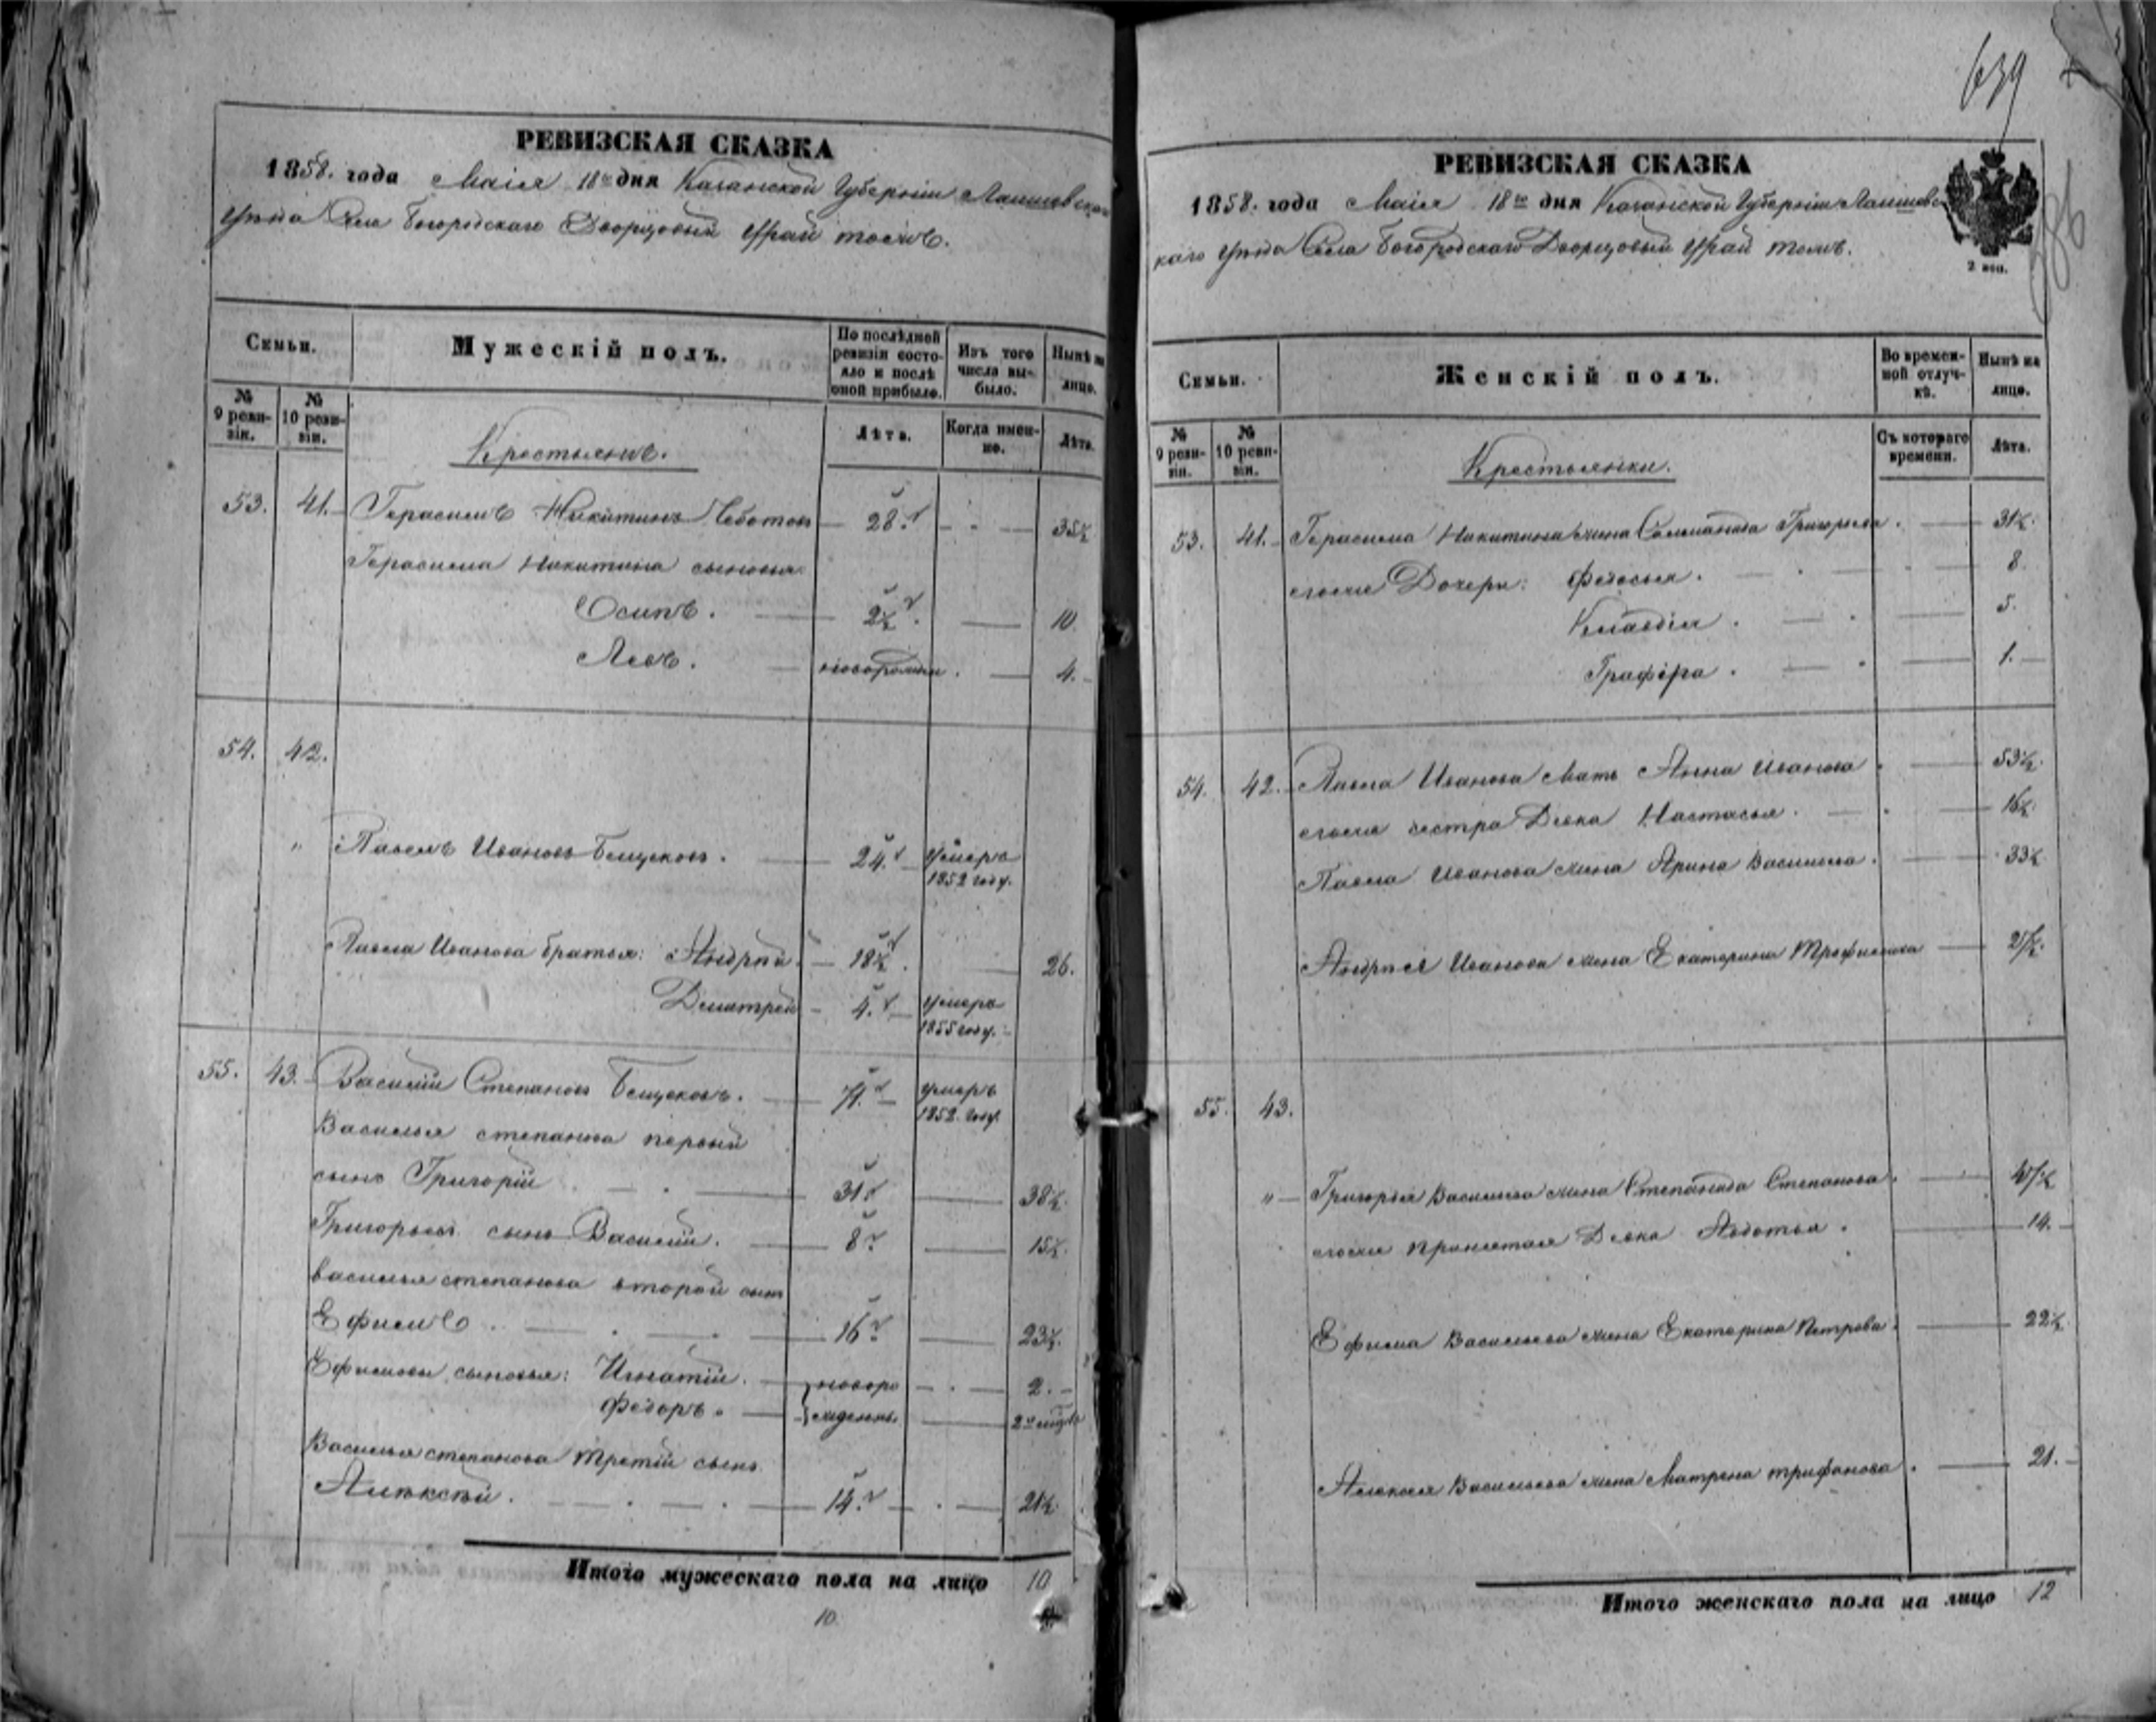 639
РЕВИЗСКАЯ СКАЗКА
1858. года Маія 18го дня Казанской Губерніи Лаишевскаго
Уѣзда Села Богородскаго Дворцовый Урай тожъ.
Семьи.
Мужескій полъ.
По послѣдней ревизіи состояло и послѣ оной прибыло.
Изъ того числа выбыло.
Нынѣ на лицо.
№ 9 ревизіи.
№ 10 ревизіи.
Крестьянъ.
Лѣта.
Когда именно.
Лѣта.
53. 41. Герасимъ Никитинъ 28. 35½
Герасима Никитина сыновья:
Осипъ. 2½. 10
Левъ. новорожден. 4.
54. 42.
" Павелъ Ивановъ 24. умеръ 1852 году.
Павла Иванова братья: Андрѣй. 18½. 26.
Дмитрей 4. умеръ 1855 году.
55. 43. Василій Степановъ 71. умеръ 1852. году.
Василья степанова первый
сынъ Григорій 31 38½.
Григорьевъ сынъ Василій. 8. 15½.
Василья степанова второй сынъ
Ефимъ. 16. 23½.
Ефимовы сыновья: Игнатій. новоро 2.
Ѳедоръ. жденны
Василья степанова третій сынъ
Алѣксѣй. 14. 21½.
Итого мужескаго пола на лицо 10
10.
РЕВИЗСКАЯ СКАЗКА
1858. года Маія 18го дня Казанской Губерніи Лаишевс
каго Уѣзда Села Богородскаго Дворцовый Урай тожъ.
2 коп.
Семьи.
Женскій полъ.
Во временной отлучкѣ.
Нынѣ на лицо.
№ 9 ревизіи.
№ 10 ревизіи.
Крестьянки.
Съ котораго времени.
Лѣта.
53. 41. Герасима Никитина жена Соломанида Григорьева. 31½.
егоже Дочери: Федосья. 8.
Клавдія. 5.
Графіра. 1.
54. 42. Павла Иванова Мать Анна Иванова 53½.
егоже сестра Девка Настасья. 16½.
Павла Иванова жена Арина Васильева. 33½
Андрѣя Иванова жена Екатерина Трофимова
55. 43.
" Григорья Васильева жена Степанида Степанова.
егоже Девка Авдотья. 14.
Ефима Васильева жена Екатерина Петрова. 22½.
Алексѣя Васильева жена Матрена трифанова. 21.
Итого женскаго пола на лицо 12